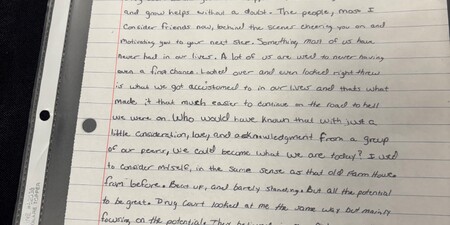 and grow helps without a doubt. The people, most I
consider friends now, behind the scenes cheering you on and
motivating you to your next step. Something most of us have
never had in our lives. A lot of us are used to never having
even a first chance. Looked over and even looked right threw
is what we got accustomed to in our lives and thats what
made it that much easier to continue on the road to hell
we were on. Who would have known that with just a
little consideration, love, and acknowledgment from a group
of our peers, we could become what we are today? I used
to consider myself, in the same sense as that old farm house
from before. Beat up, and barely standing. But all the potential
to be great. Drug Court looked at me the same way but mainly
focusing on the potential. They